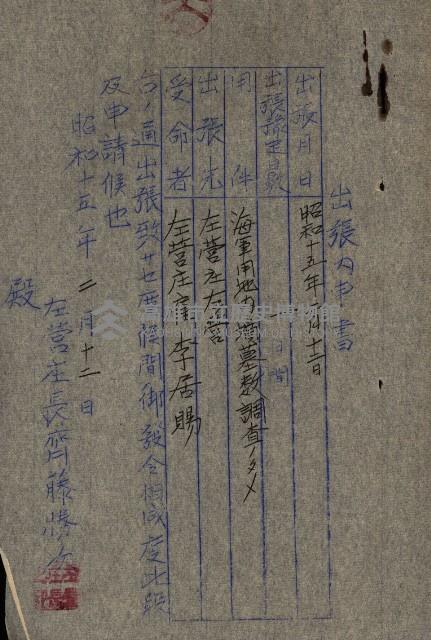 出張内申書
出張月日 昭和十五年二月十三日
出張豫定日数 日間
用件 海軍用地内墳墓数調查ノタメ
出張先 左營庄左營
受命者 左營庄雇 李居賜
右ノ通出張致サセ度候間御發令相成度此段
及申請候也
昭和十五年二月十二日
左營庄長齊藤
殿
高雄市立歷史博物館